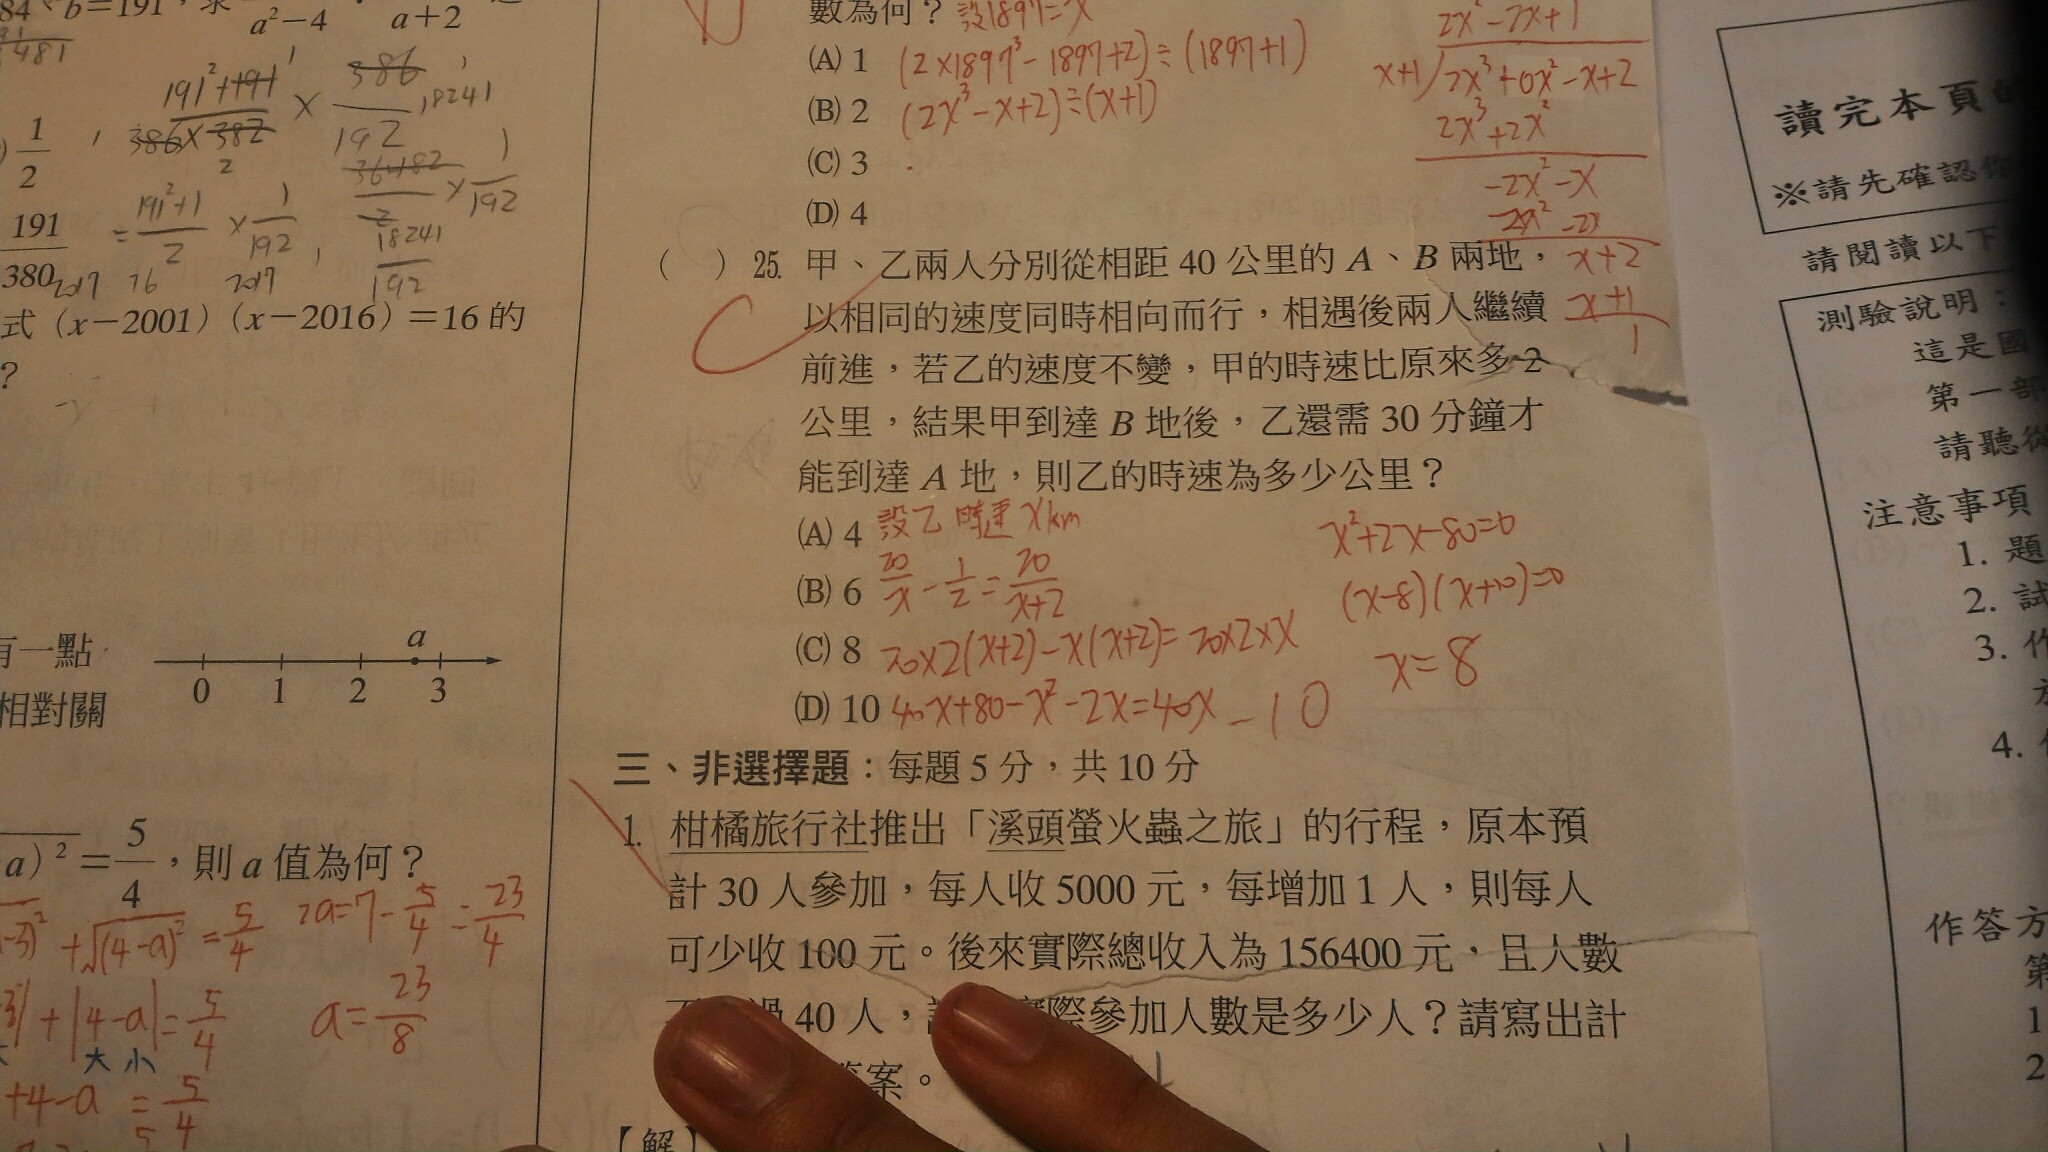 b=191，求
a²-4
a+2
191²+191
386×382
×
386
192
18241
1
2
2
191
380
=
191²+1
2
×
1
192
36482
2
×
1
192
18241
192
2017 16 2017
式（x－2001）（x－2016）＝16 的
？
有一點
a
0 1 2 3
相對關
a）²＝5/4，則 a 值為何？
-3)²+√(4-a)²=5/4
2a=7-5/4=23/4
+|4-a|=5/4
a=23/8
大 小
+4-a=5/4
數為何？設1897=x
(A) 1 (2×1897³-1897+2)÷(1897+1)
(B) 2 (2x³-x+2)÷(x+1)
(C) 3
(D) 4
2x²-2x+1
x+1 2x³+0x²-x+2
2x³+2x²
-2x²-x
-2x²-2x
x+2
x+1
1
（ ）25. 甲、乙兩人分別從相距 40 公里的 A、B 兩地，
以相同的速度同時相向而行，相遇後兩人繼續
前進，若乙的速度不變，甲的時速比原來多 2
公里，結果甲到達 B 地後，乙還需 30 分鐘才
能到達 A 地，則乙的時速為多少公里？
(A) 4 設乙時速 x km
(B) 6 20/x-1/2=20/x+2
(C) 8 20×2(x+2)-x(x+2)=20×2×x
(D) 10 40x+80-x²-2x=40x -10
x²+2x-80=0
(x-8)(x+10)=0
x=8
三、非選擇題：每題 5 分，共 10 分
1. 柑橘旅行社推出「溪頭螢火蟲之旅」的行程，原本預
計 30 人參加，每人收 5000 元，每增加 1 人，則每人
可少收 100 元。後來實際總收入為 156400 元，且人數
過 40 人，實際參加人數是多少人？請寫出計
答案。
【解】
讀完本頁
※請先確認你
請閱讀以下
測驗說明：
這是國
第一部
請聽從
注意事項
1. 題
2. 試
3. 作
4.
作答方
第
1
2